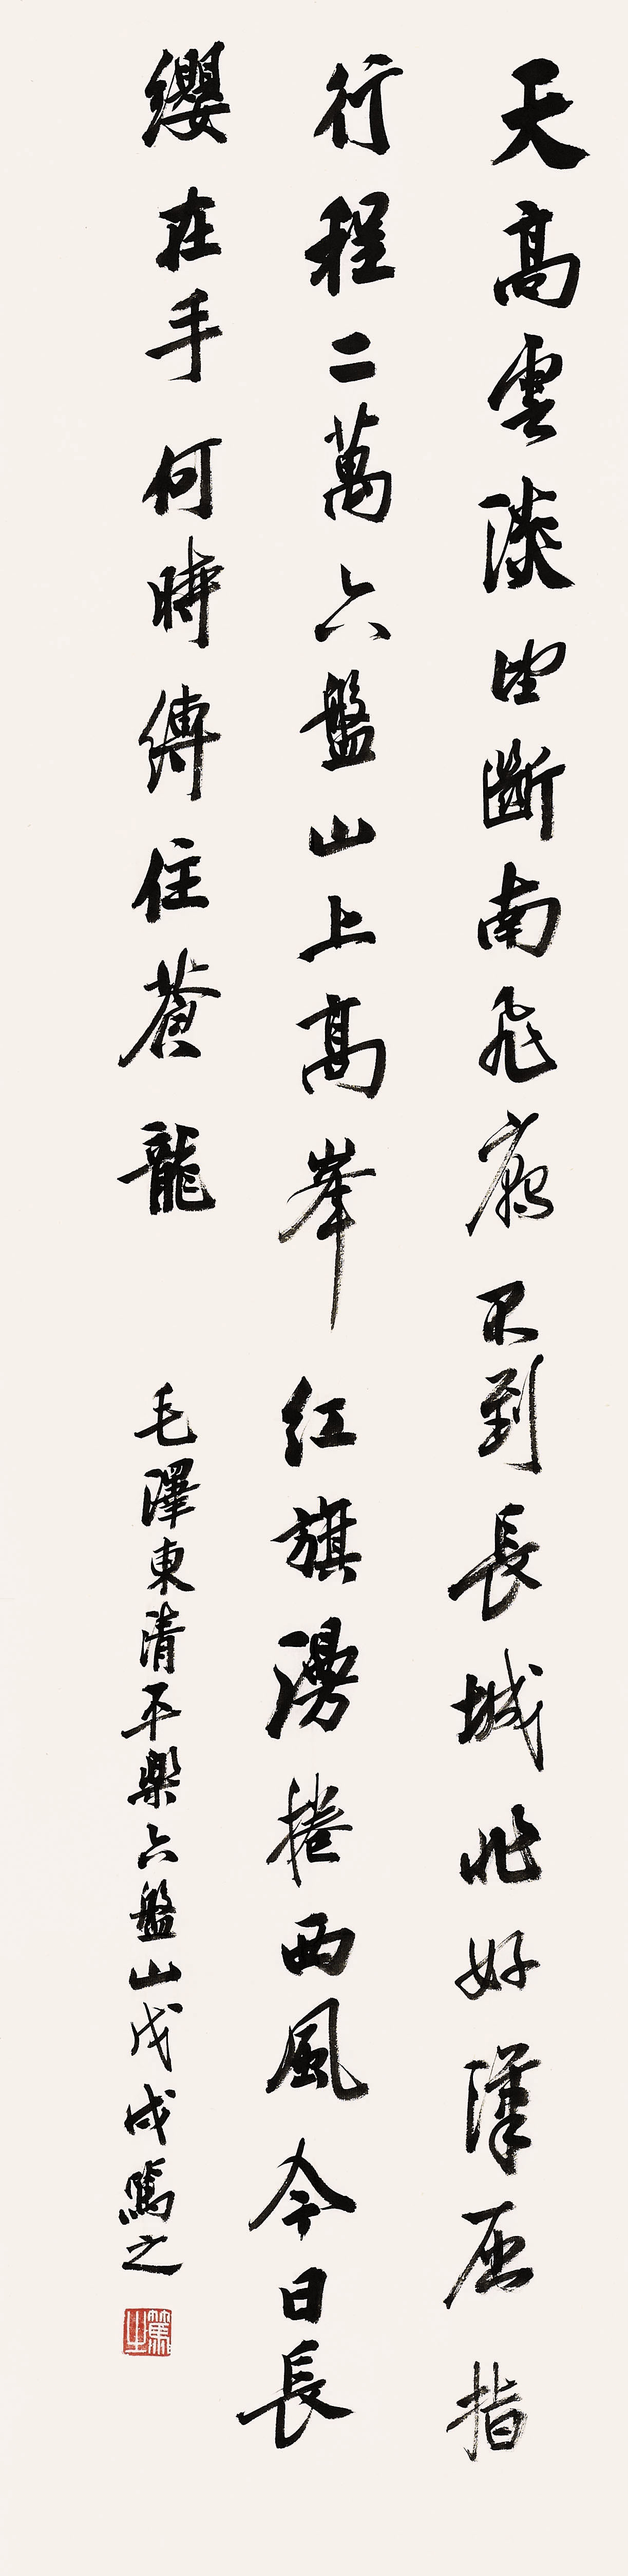 天高雲淡望斷南飛雁不到長城非好漢屈指
行程二萬六盤山上高峯紅旗漫捲西風今日長
纓在手何時縛住蒼龍
毛澤東清平樂六盤山戊戌篤之
篤之